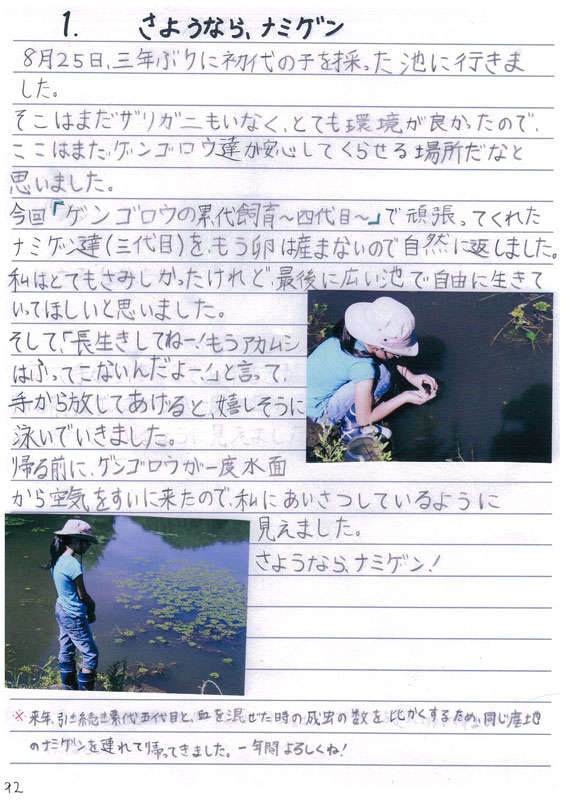 1. さようなら、ナミゲン
8月25日、三年ぶりに初代の子を採った池に行きま
した。
そこはまだザリガニもいなく、とても環境が良かったので、
ここはまだゲンゴロウ達が安心してくらせる場所だなと
思いました。
今回「ゲンゴロウの累代飼育〜四代目〜」で頑張ってくれた
ナミゲン達(三代目)を、もう卵は産まないので自然に返しました。
私はとてもさみしかったけれど、最後に広い池で自由に生きて
いってほしいと思いました。
そして、「長生きしてねー!もうアカムシ
はふってこないんだよー!」と言って、
手から放してあげると、嬉しそうに
泳いでいきました。
帰る前に、ゲンゴロウが一度水面
から空気をすいに来たので、私にあいさつしているように
見えました。
さようなら、ナミゲン!
※来年、引き続き累代五代目と、血を混ぜた時の成虫の数を比かくするため、同じ産地
のナミゲンを連れて帰ってきました。一年間よろしくね!
92